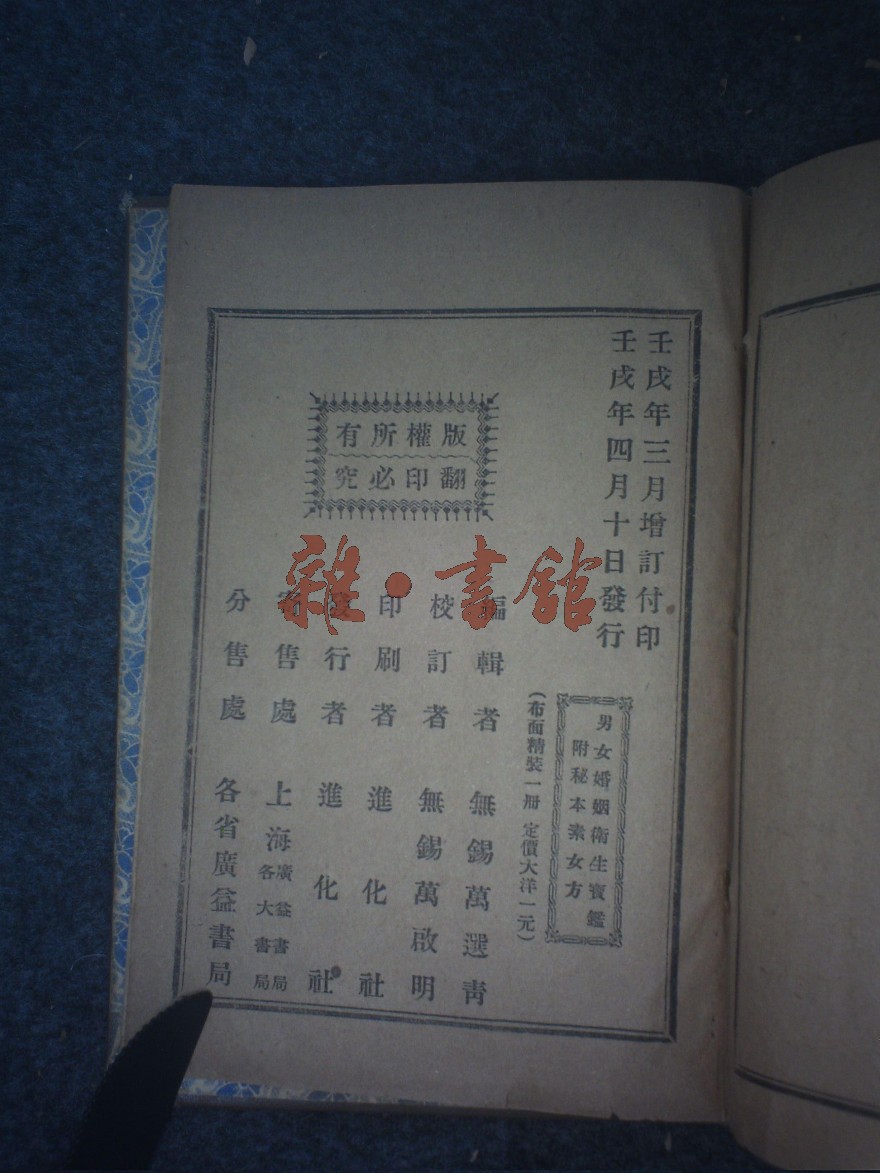 壬戌年三月增訂付印
壬戌年四月十日發行
男女婚姻衛生寳鑑
附秘本素女方
(布面精裝一册 定價大洋一元)
版權所有
翻印必究
編輯者 無錫萬選青
校訂者 無錫萬啟明
印刷者 進化社
發行者 進化社
寄售處 上海廣益書局各大書局
分售處 各省廣益書局
雜·書館